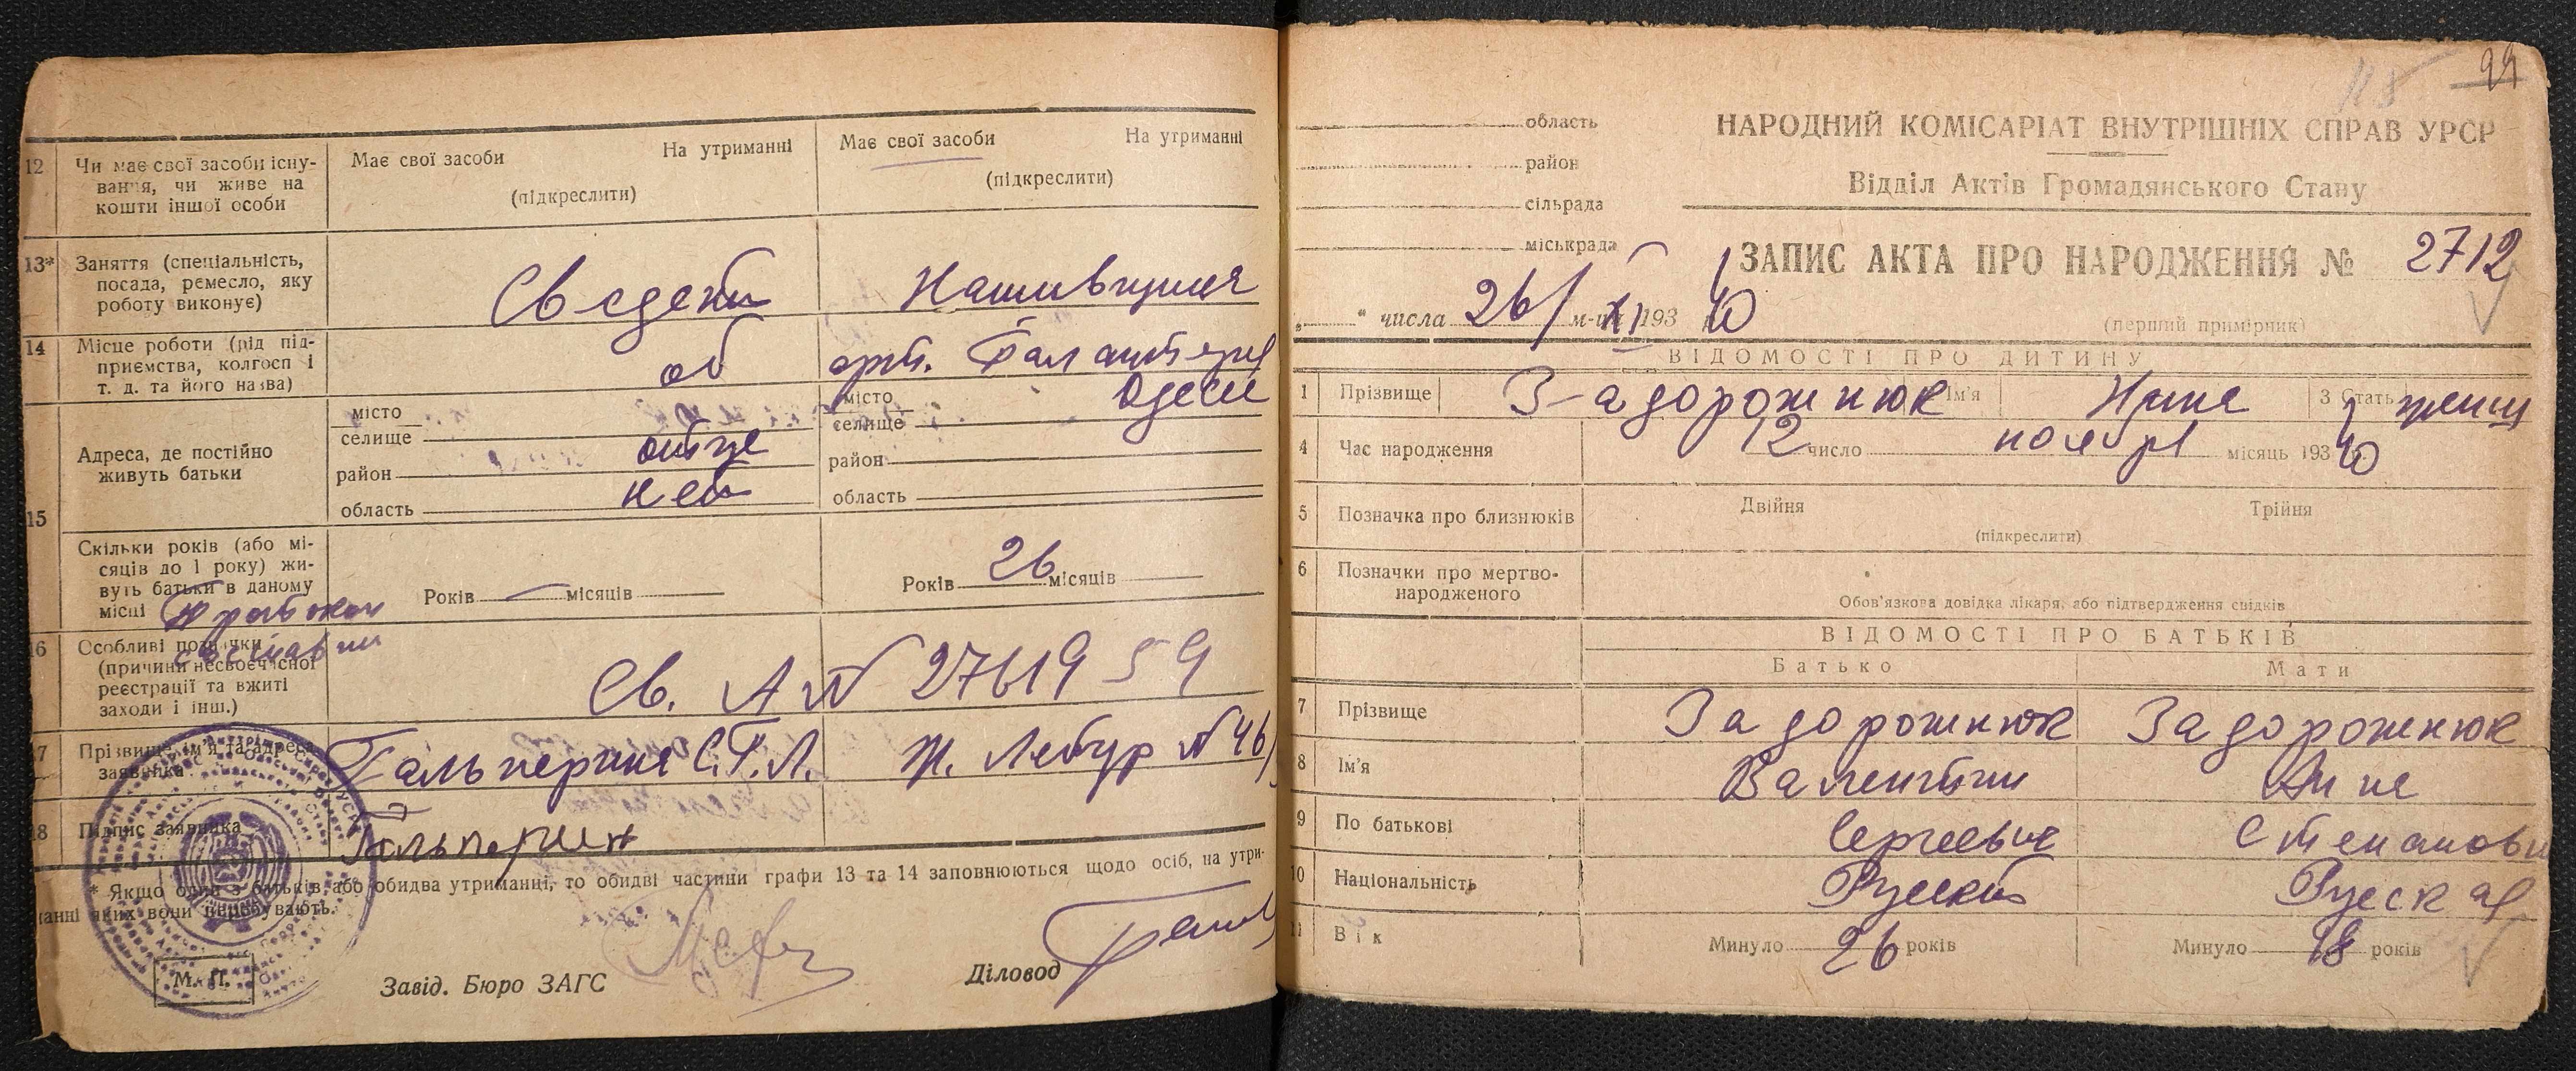 12 Чи має свої засоби існу-
вання, чи живе на
кошти іншої особи
Має свої засоби На утриманні
(підкреслити)
Має свої засоби На утриманні
(підкреслити)
13* Заняття (спеціальність,
посада, ремесло, яку
роботу виконує)
Сведени
14 Місце роботи (рід під-
приємства, колгосп і
т. д. та його назва)
об
арт. Галантерея
15 Адреса, де постійно
живуть батьки
місто
селище отце
район
область нет
місто Одесса
селище
район
область
Скільки років (або мі-
сяців до 1 року) жи-
вуть батьки в даному
місці
Років — місяців
Років 26 місяців
16 Особливі позначки
(причини несвоєчасної
реєстрації та вжиті
заходи і інш.)
Св. А № 27619 59
17 Прізвище, ім'я та адреса
заявника
Гальперина С.Г.Л. Ж. Лябур № 46
18 Підпис заявника
Гальперин
* Якщо один з батьків або обидва утриманні, то обидві частини графи 13 та 14 заповнюються щодо осіб, на утри-
манні яких вони перебувають.
М. П.
Завід. Бюро ЗАГС
Діловод
99
115
область
район
сільрада
міськрада
НАРОДНИЙ КОМІСАРІАТ ВНУТРІШНІХ СПРАВ УРСР
Відділ Актів Громадянського Стану
ЗАПИС АКТА ПРО НАРОДЖЕННЯ № 2712
„ “ числа 26/ м-ця XI 193 40
(перший примірник)
ВІДОМОСТІ ПРО ДИТИНУ
1 Прізвище Задорожнюк Ім'я Нина 3 Стать женщ
4 Час народження 12 число ноября місяць 193 40
5 Позначка про близнюків Двійня Трійня
(підкреслити)
6 Позначки про мертво-
народженого
Обов'язкова довідка лікаря, або підтвердження свідків
ВІДОМОСТІ ПРО БАТЬКІВ
Батько Мати
7 Прізвище Задорожнюк Задорожнюк
8 Ім'я Валентин Анна
9 По батькові Сергеевич Степановн
10 Національність Русский Русская
11 Вік Минуло 26 років Минуло 18 років